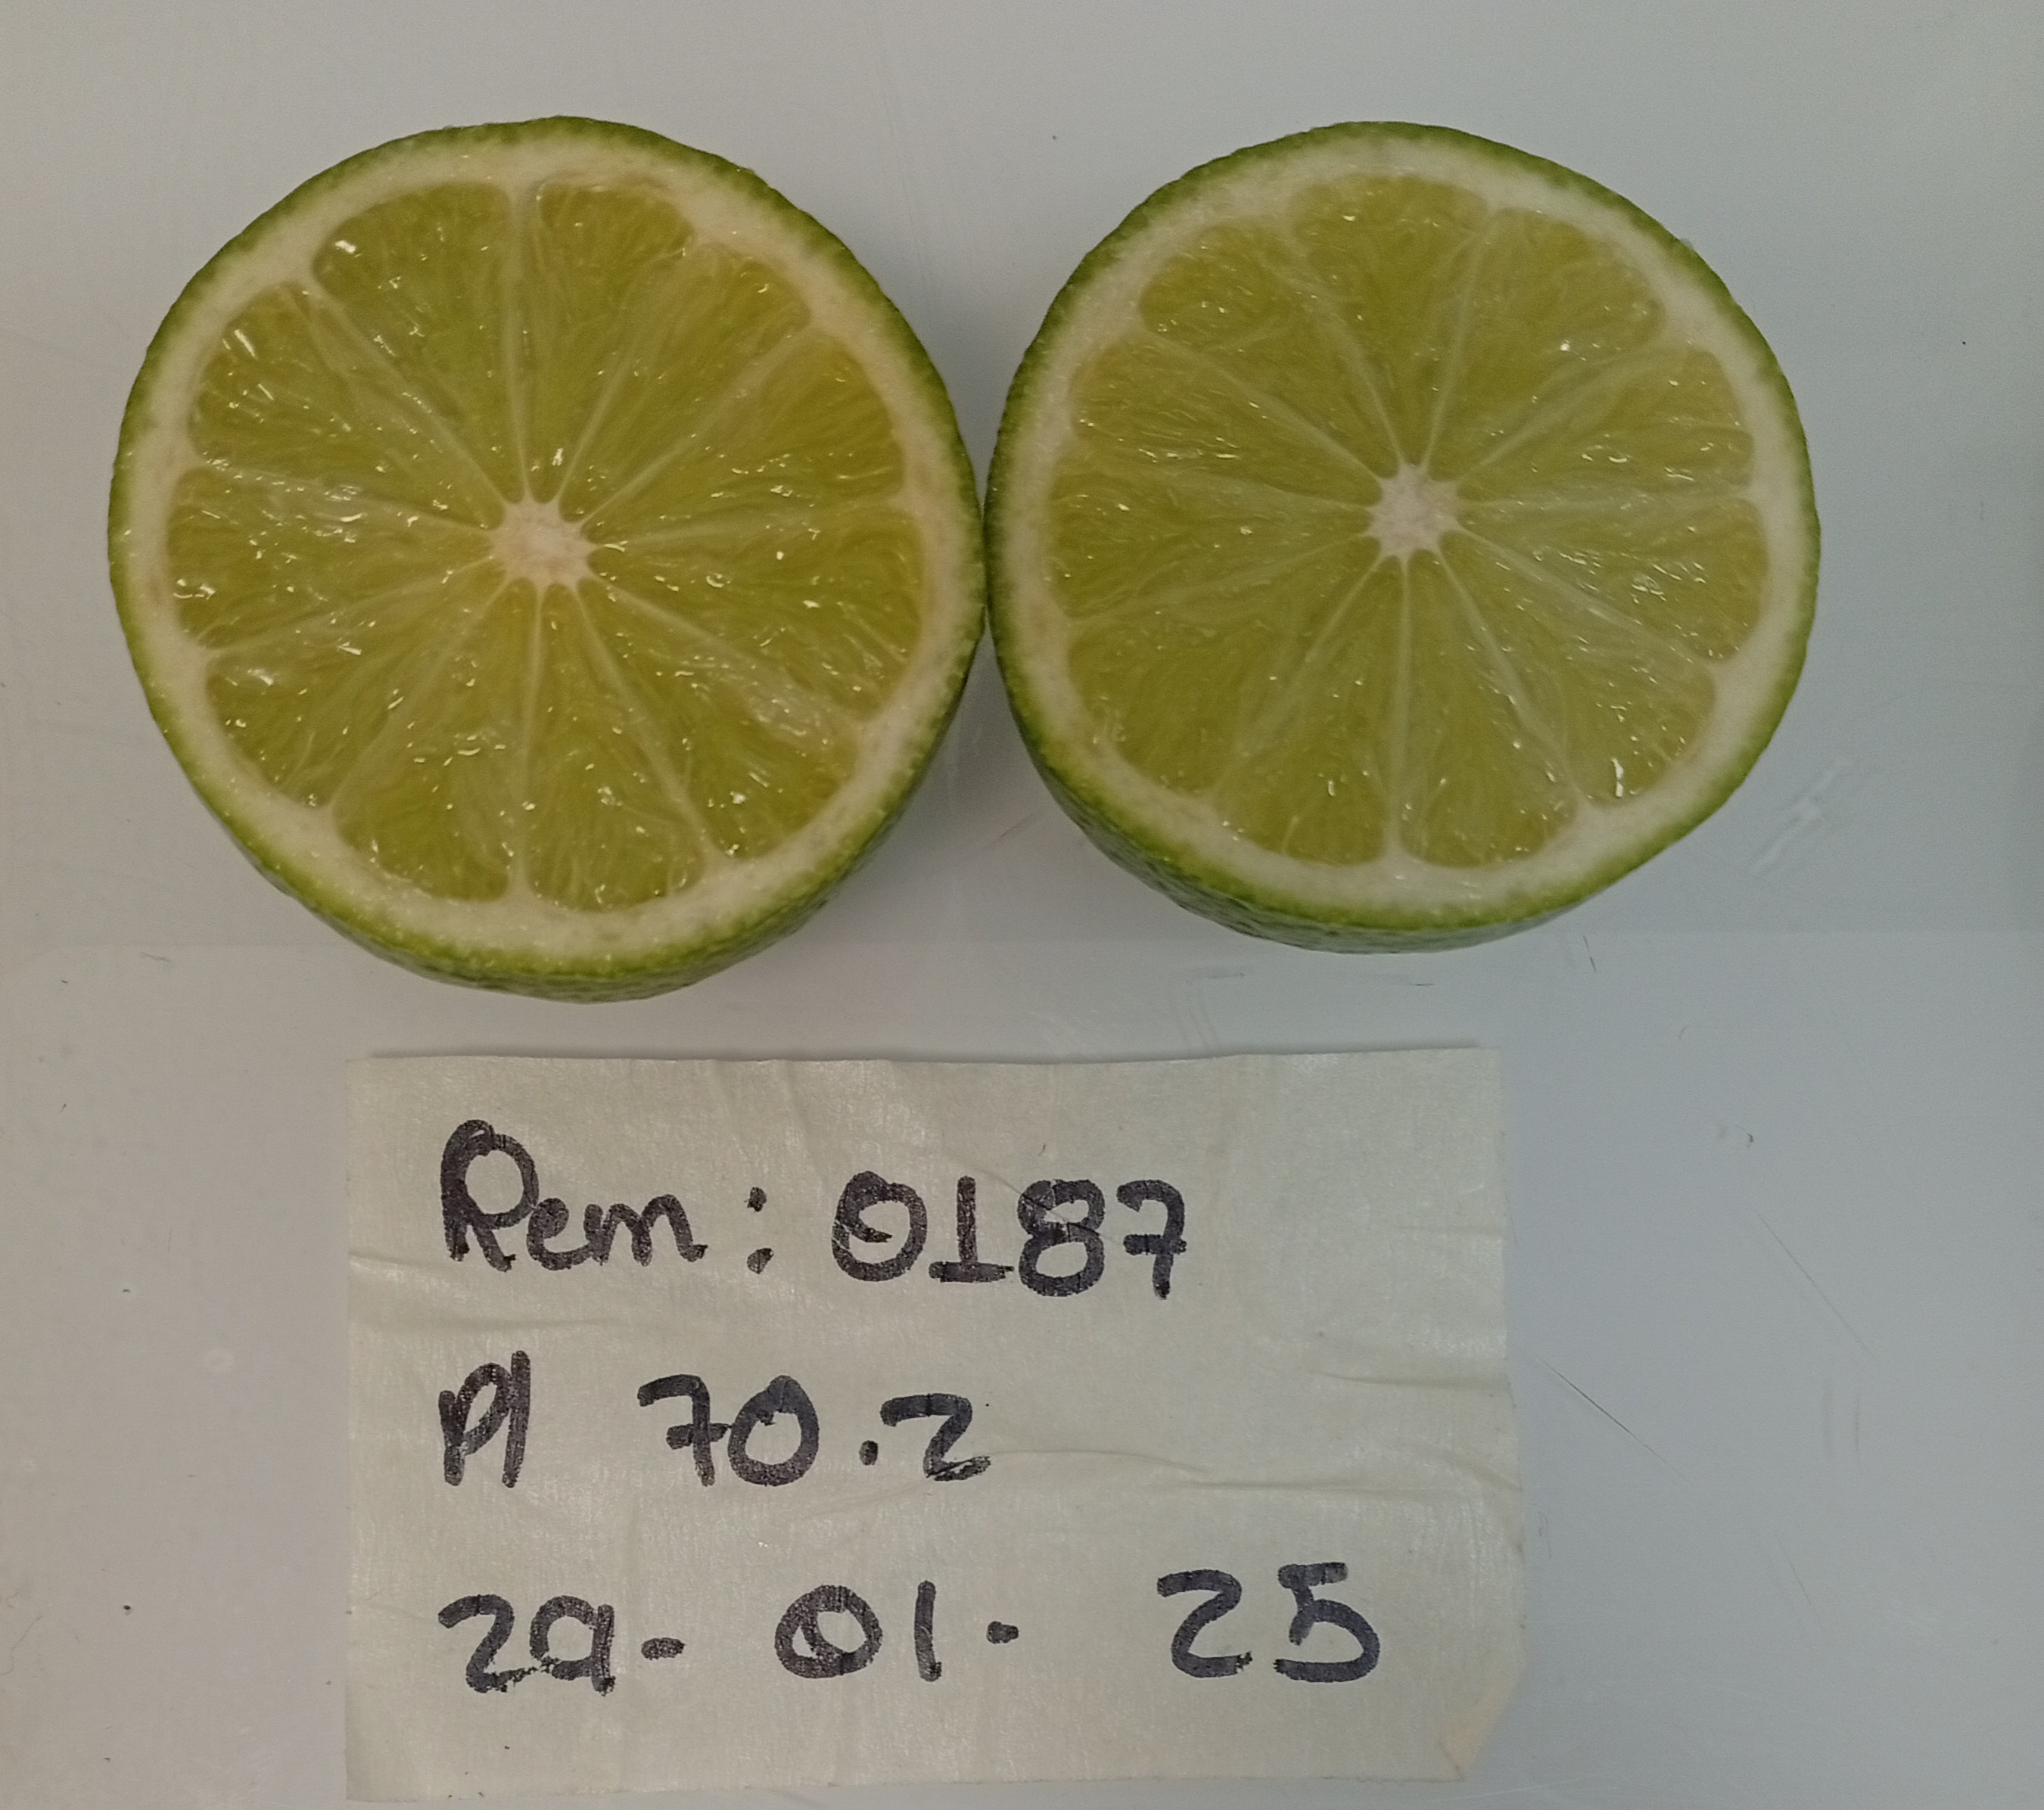 Rem: 0187
Pl 70.2
29-01-25